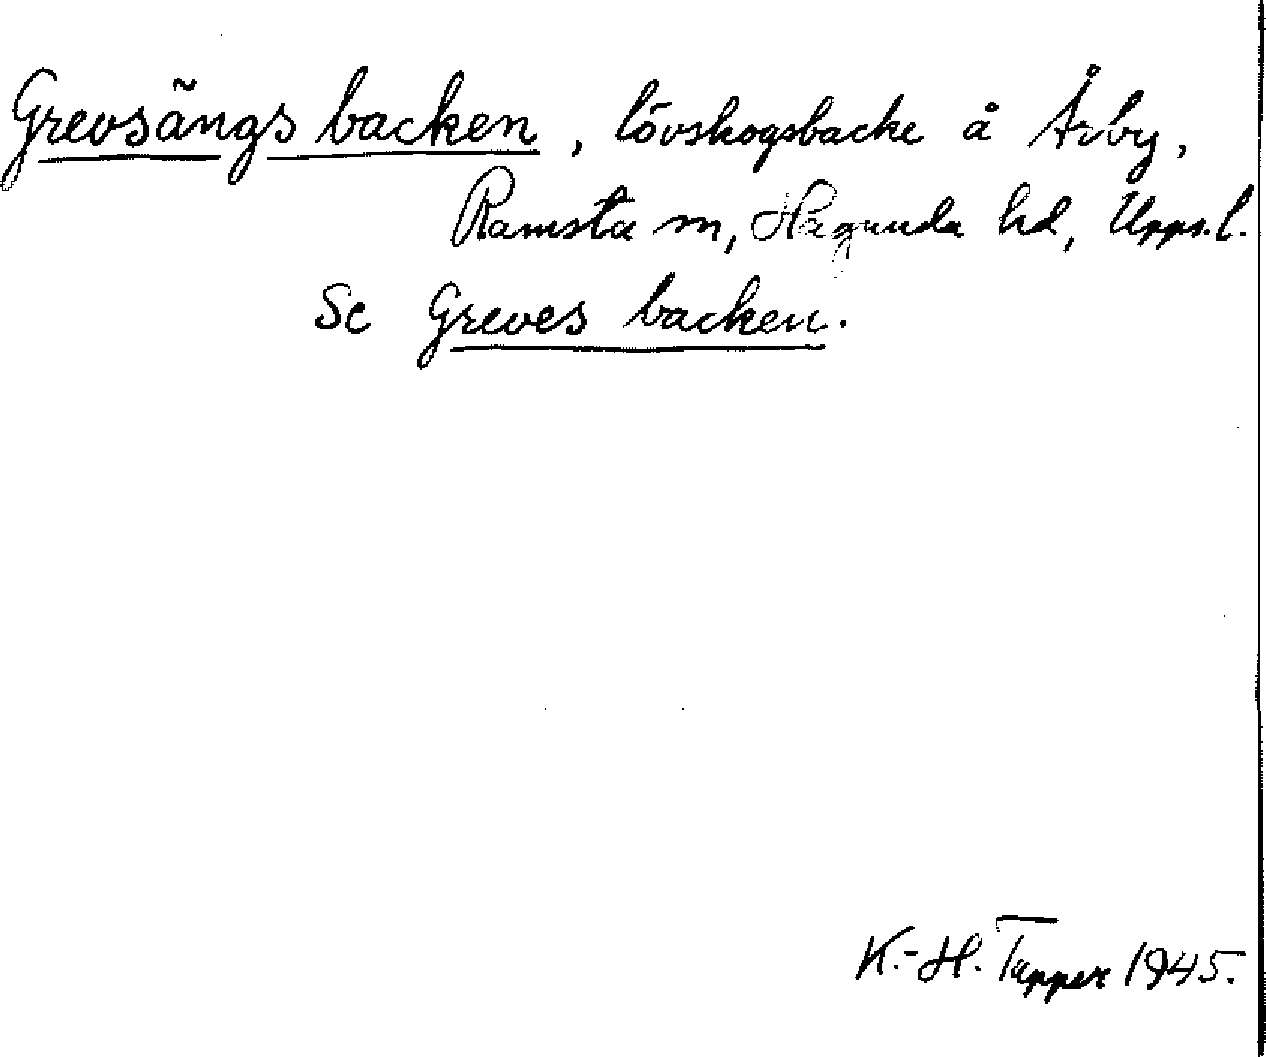 Grevsängs backen, lövskogsbacke å Årby,
Ramsta sn, Hagunda hd, Uppl.
Se Greves backen.
K.-H. Tapper 1945.